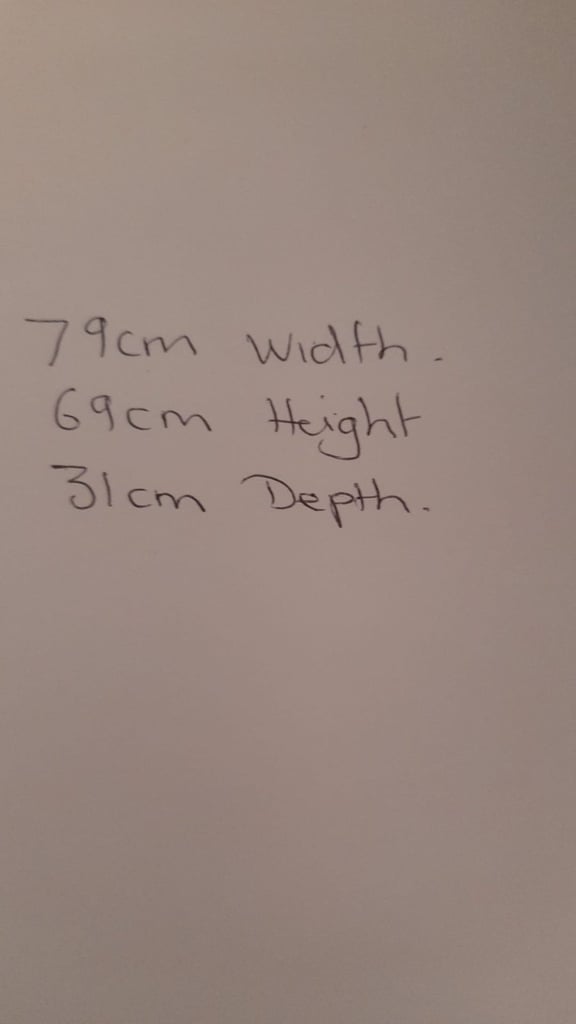 79cm Width.
69cm Height
31cm Depth.